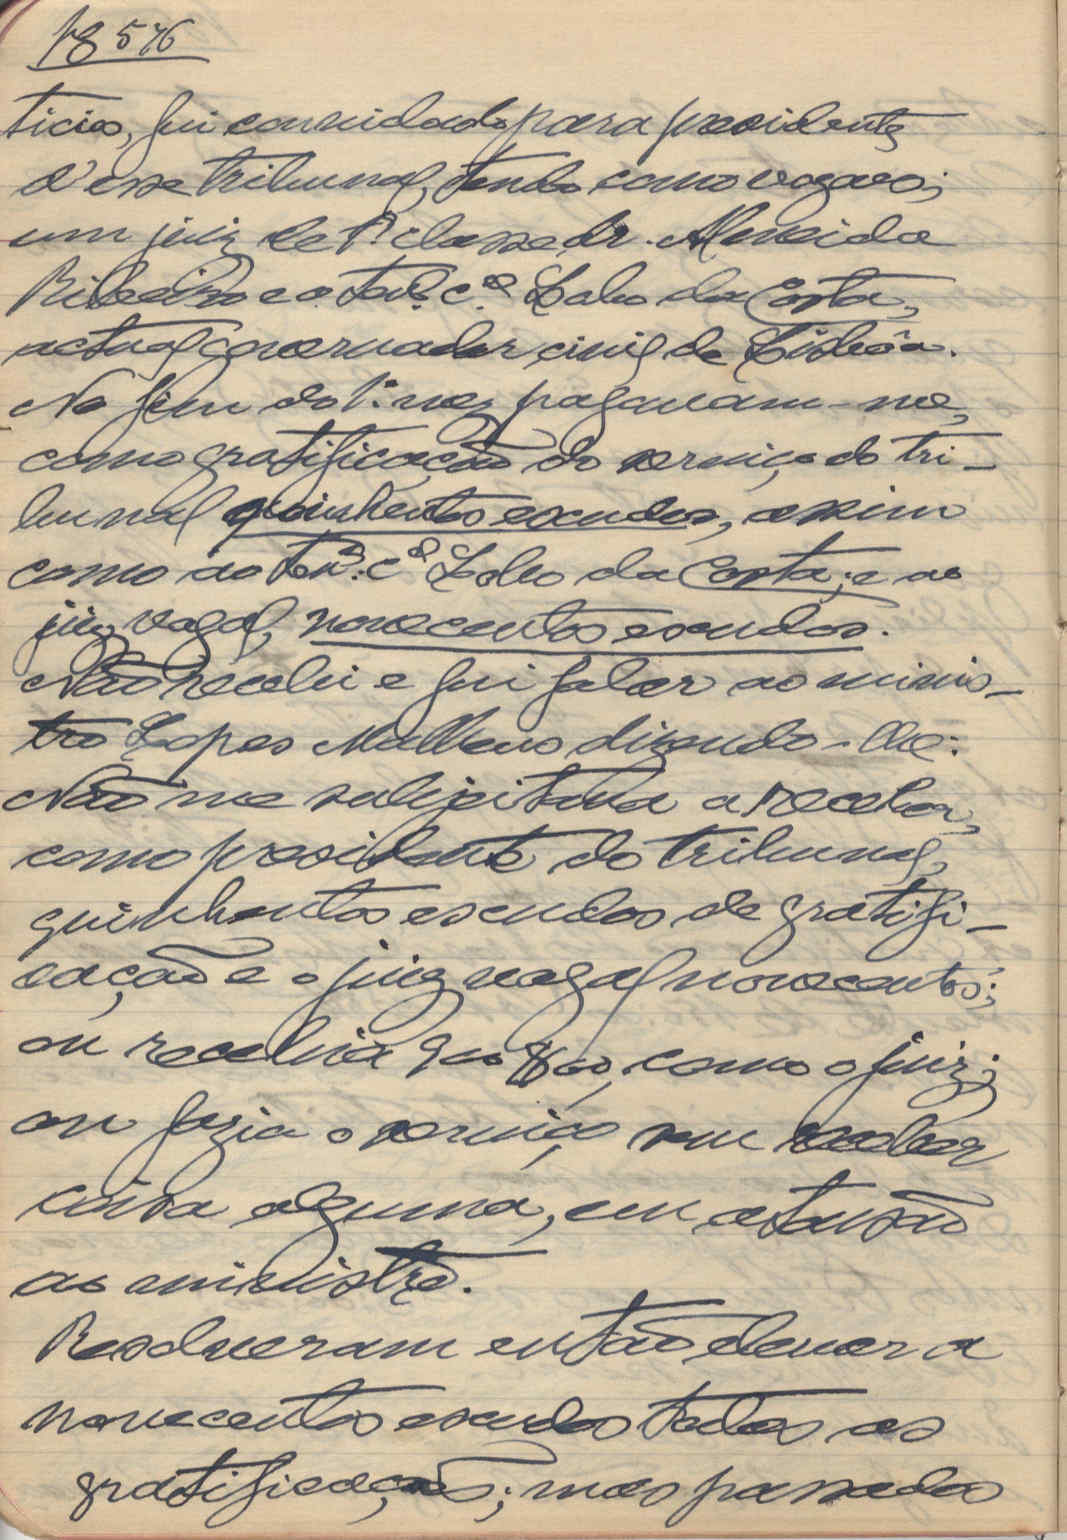 pg 576
ticias, fui convidado para presidente
d'esse tribunal, tendo como vogaes;
um juiz de 1ª classe dr. Almeida
Ribeiro e o ten.e c.el Lobo da Costa,
actual governador civil de Lisbôa.
No fim do 1º mez pagavam-me,
como gratificação do serviço do tri-
bunal quinhentos escudos, assim
como ao ten.e c.el Lobo da Costa; e ao
juiz vogal, novecentos escudos.
Não recebi e fui falar ao minis-
tro Lopes Matheus dizendo-lhe:
Não me sujeitava a receber,
como presidente do tribunal,
quinhentos escudos de gratifi-
cação e o juiz vogal novecentos;
ou recebia 900$00, como o juiz;
ou fazia o serviço sem receber
coisa alguma, em atensão
ao ministro.
Resolveram então elevar a
novecentos escudos todas as
gratificações; mas passados